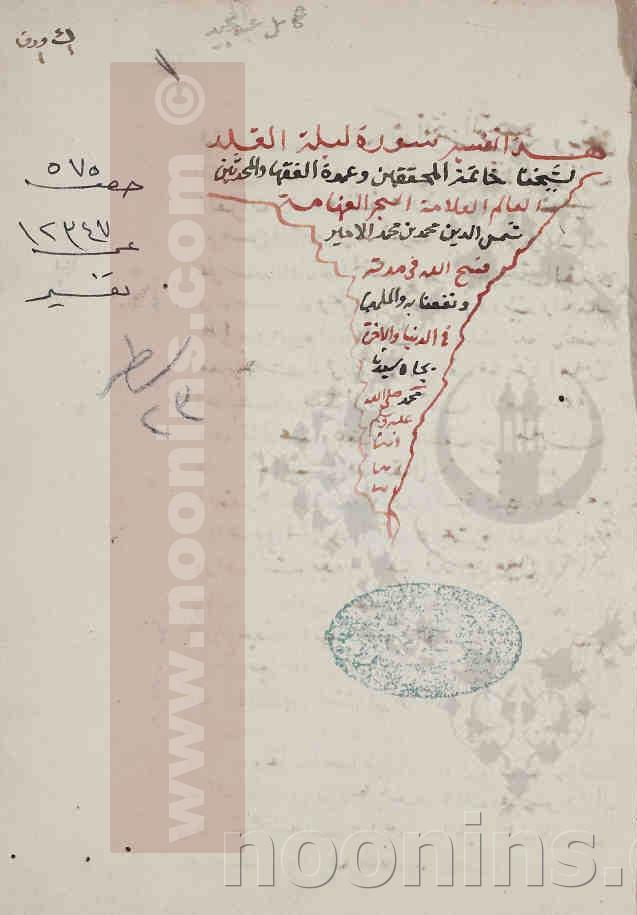 هذا تفسير سورة ليلة القدر
لشيخنا خاتمة المحققين وعمدة الفقها والمحدثين
العالم العلامة البحر الفهامة
شمس الدين محمد بن محمد الامير
فسح الله في مدته
ونفعنا به والمسلمين
في الدنيا والاخرة
بجاه سيدنا
محمد صلى الله
عليه وسلم
امين
٥٧٥
١٢٣٤٧
تفسير
سطر
٢٣
www.noonins.com ©
noonins.